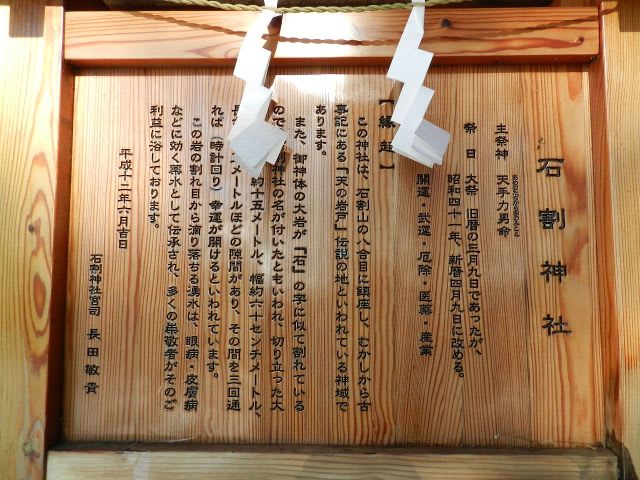 石割神社
主祭神　天手力男命
祭　日　大祭　旧暦の三月九日であったが、
昭和四十一年、新暦四月九日に改める。
開運・武運・厄除・医薬・産業
【縁起】
この神社は、石割山の八合目に鎮座し、むかしから古
事記にある「天の岩戸」伝説の地といわれている神域で
あります。
また、御神体の大岩が「石」の字に似て割れている
ので、神社の名が付いたともいわれ、切り立った大
約十五メートル、幅約六十センチメートル、
メートルほどの隙間があり、その間を三回通
れば（時計回り）幸運が開けるといわれています。
この岩の割れ目から滴り落ちる湧水は、眼病・皮膚病
などに効く薬水として伝承され、多くの崇敬者がそのご
利益に浴しております。
平成十二年六月吉日
石割神社宮司　長田敏貴